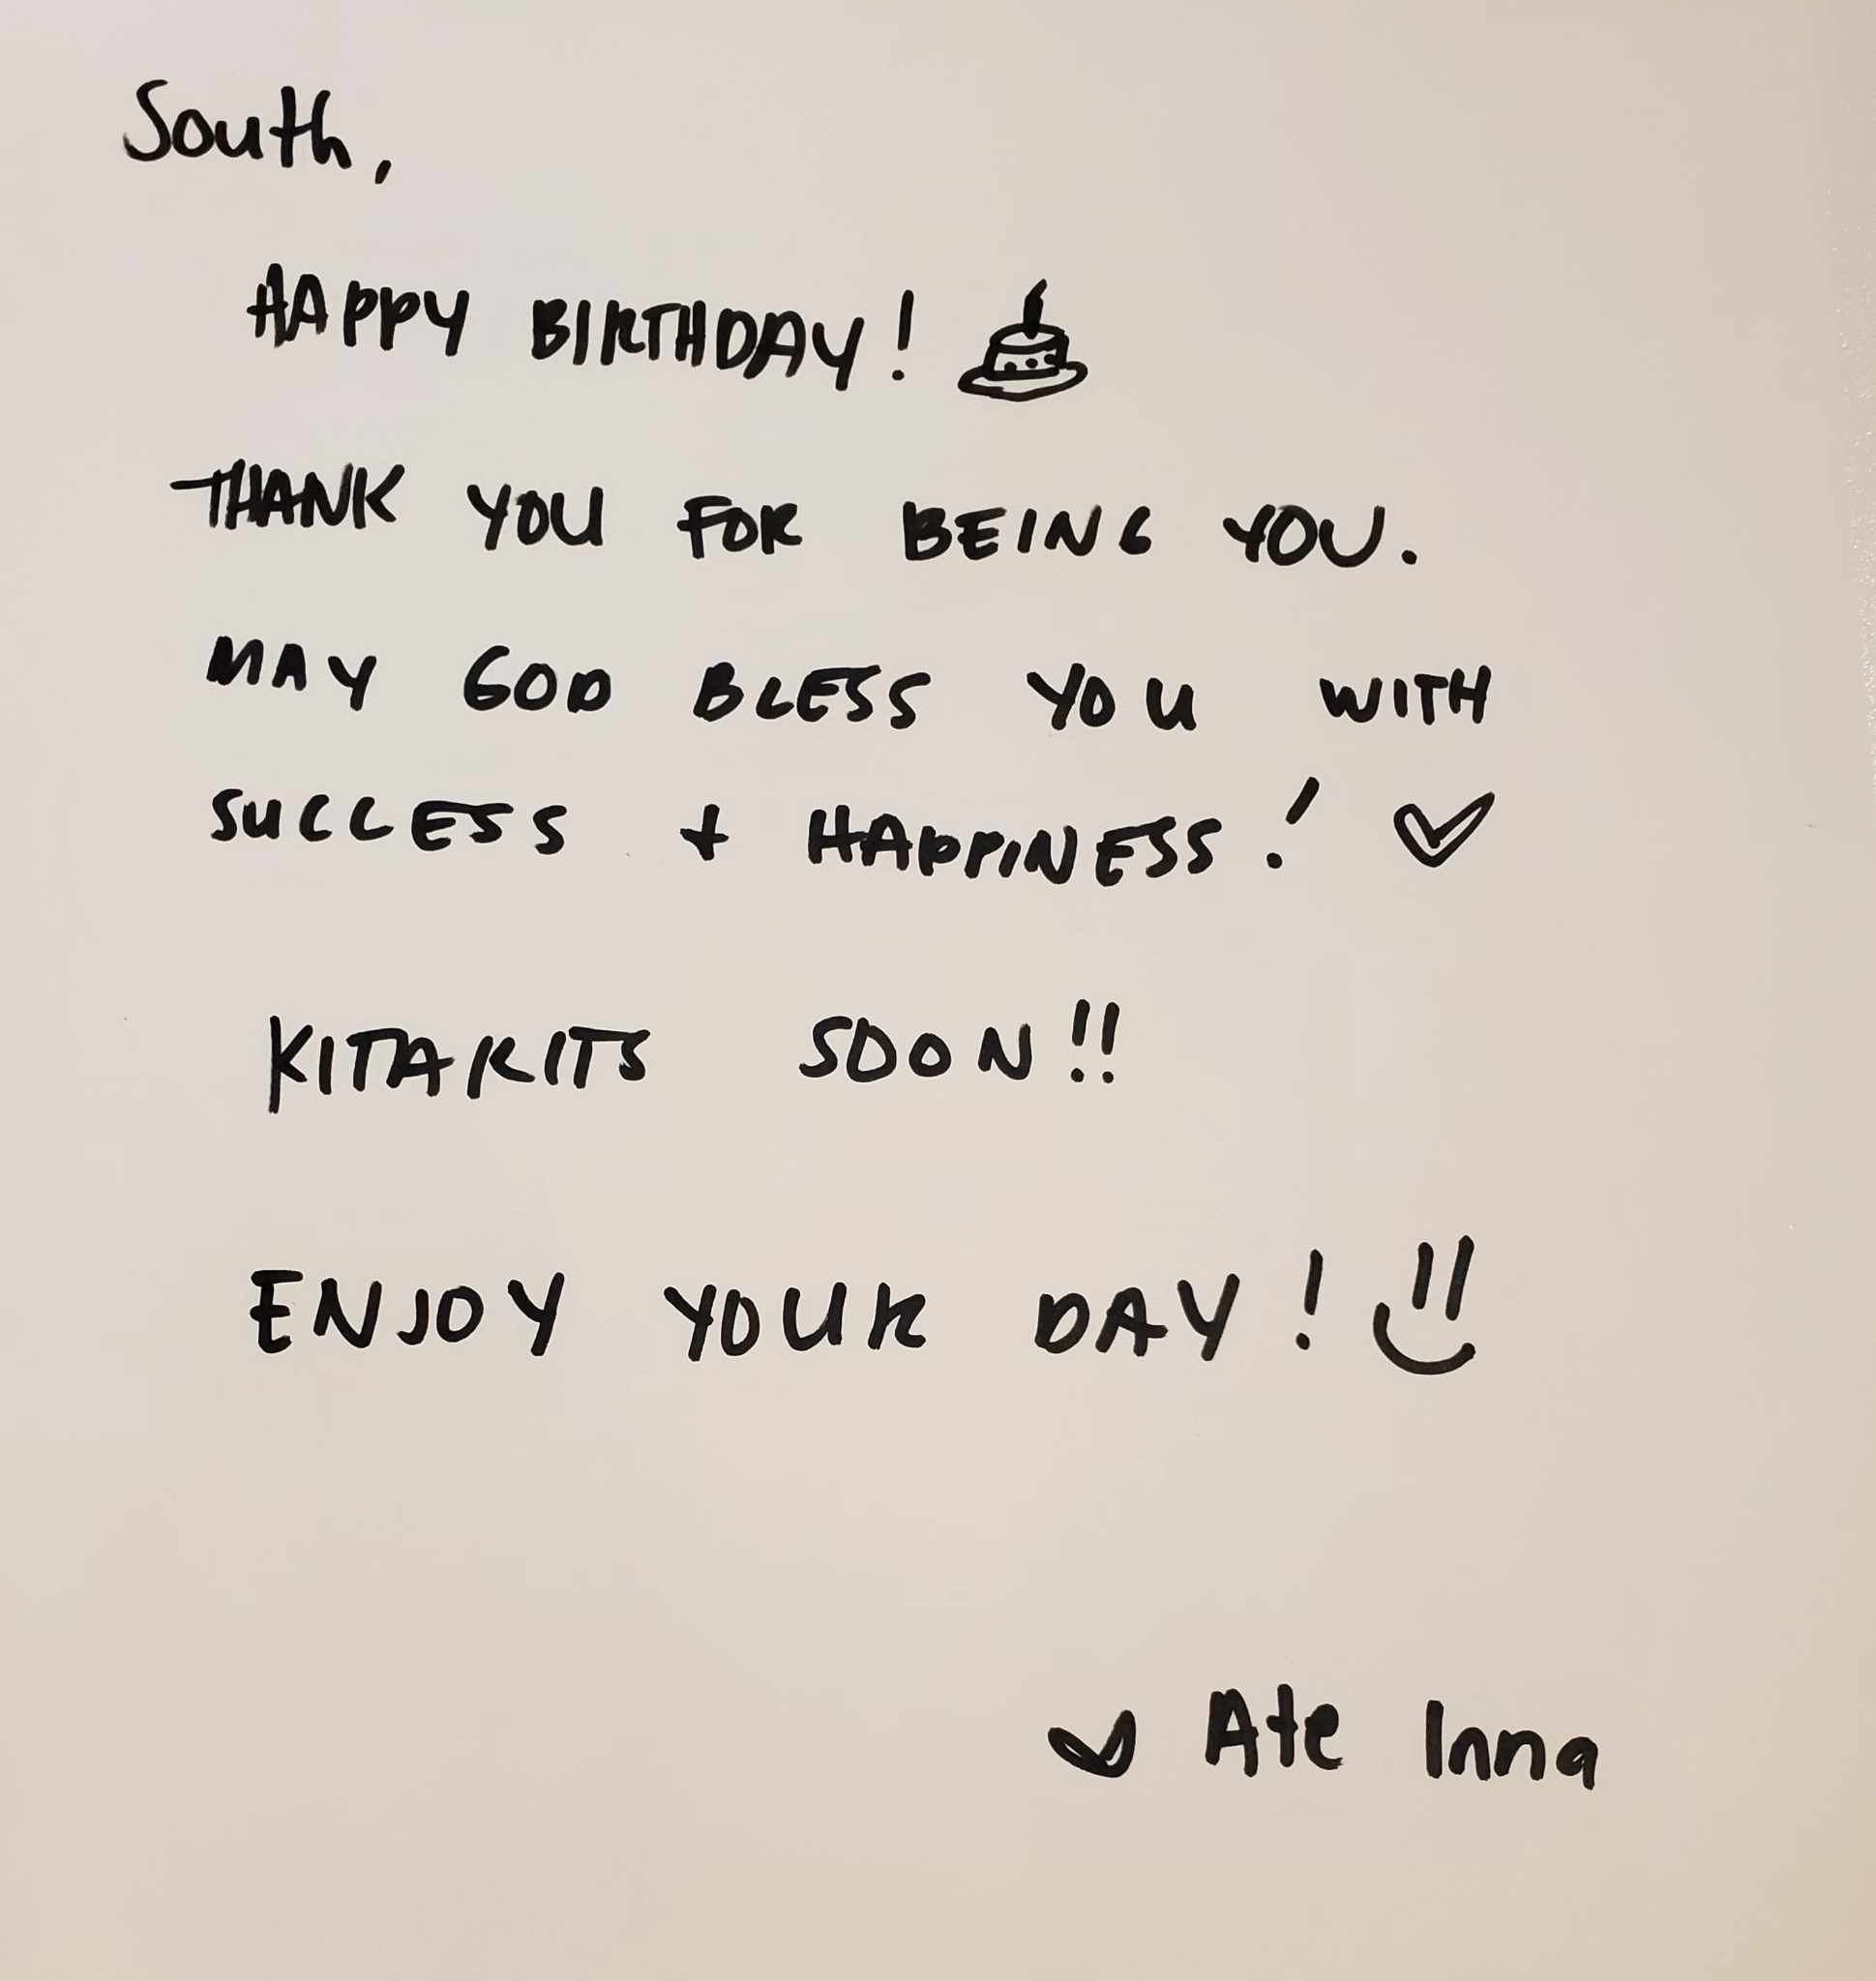 South,
HAPPY BIRTHDAY!
THANK YOU FOR BEING YOU.
MAY GOD BLESS YOU WITH
SUCCESS + HAPPINESS!
KITAKITS SOON!!
ENJOY YOUR DAY!
Ate Inna